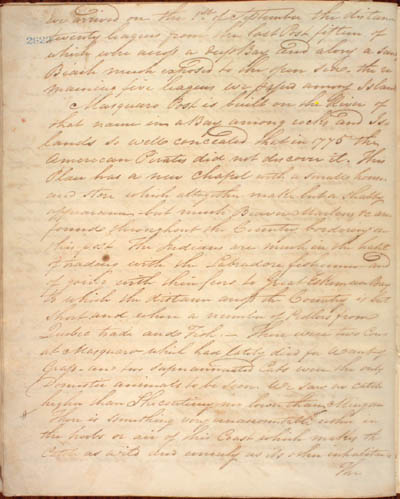 we arrived on the 1st of September the distance
2622
twenty leagues from the last Post fifteen of
which were across a deep Bay and along a Sandy
Beach much exposed to the open Sea. the re
maining five leagues we passed among Islands
Masquaro Post is built on the River of
that name in a Bay among rocks and Is
lands so well concealed that in 1775 the
American Pirates did not discover it. This
Place has a new Chapel with a small house
and store which altogether make but a shabby
appearance but much Beaver Martens &c are
found throughout the Country bordering on
this Post The Indians are much in the habit
of trading with the Labradore fishermen and
of going with their furs to Great Eskemau Bay
to which the distance across the Country is but
short and where a number of Pedlers from
Quebec trade and Fish. — There were two Cows
at Masquaro which had lately died for want of
Grass and two superannuated Cats were the only
Domestic animals to be seen. We saw no cattle
higher than Shecutimy nor lower than Mingan
There is something very unaccountable either in
the herbs or air of this Coast which makes the
Cattle as wild and unruly as its other inhabitants
The